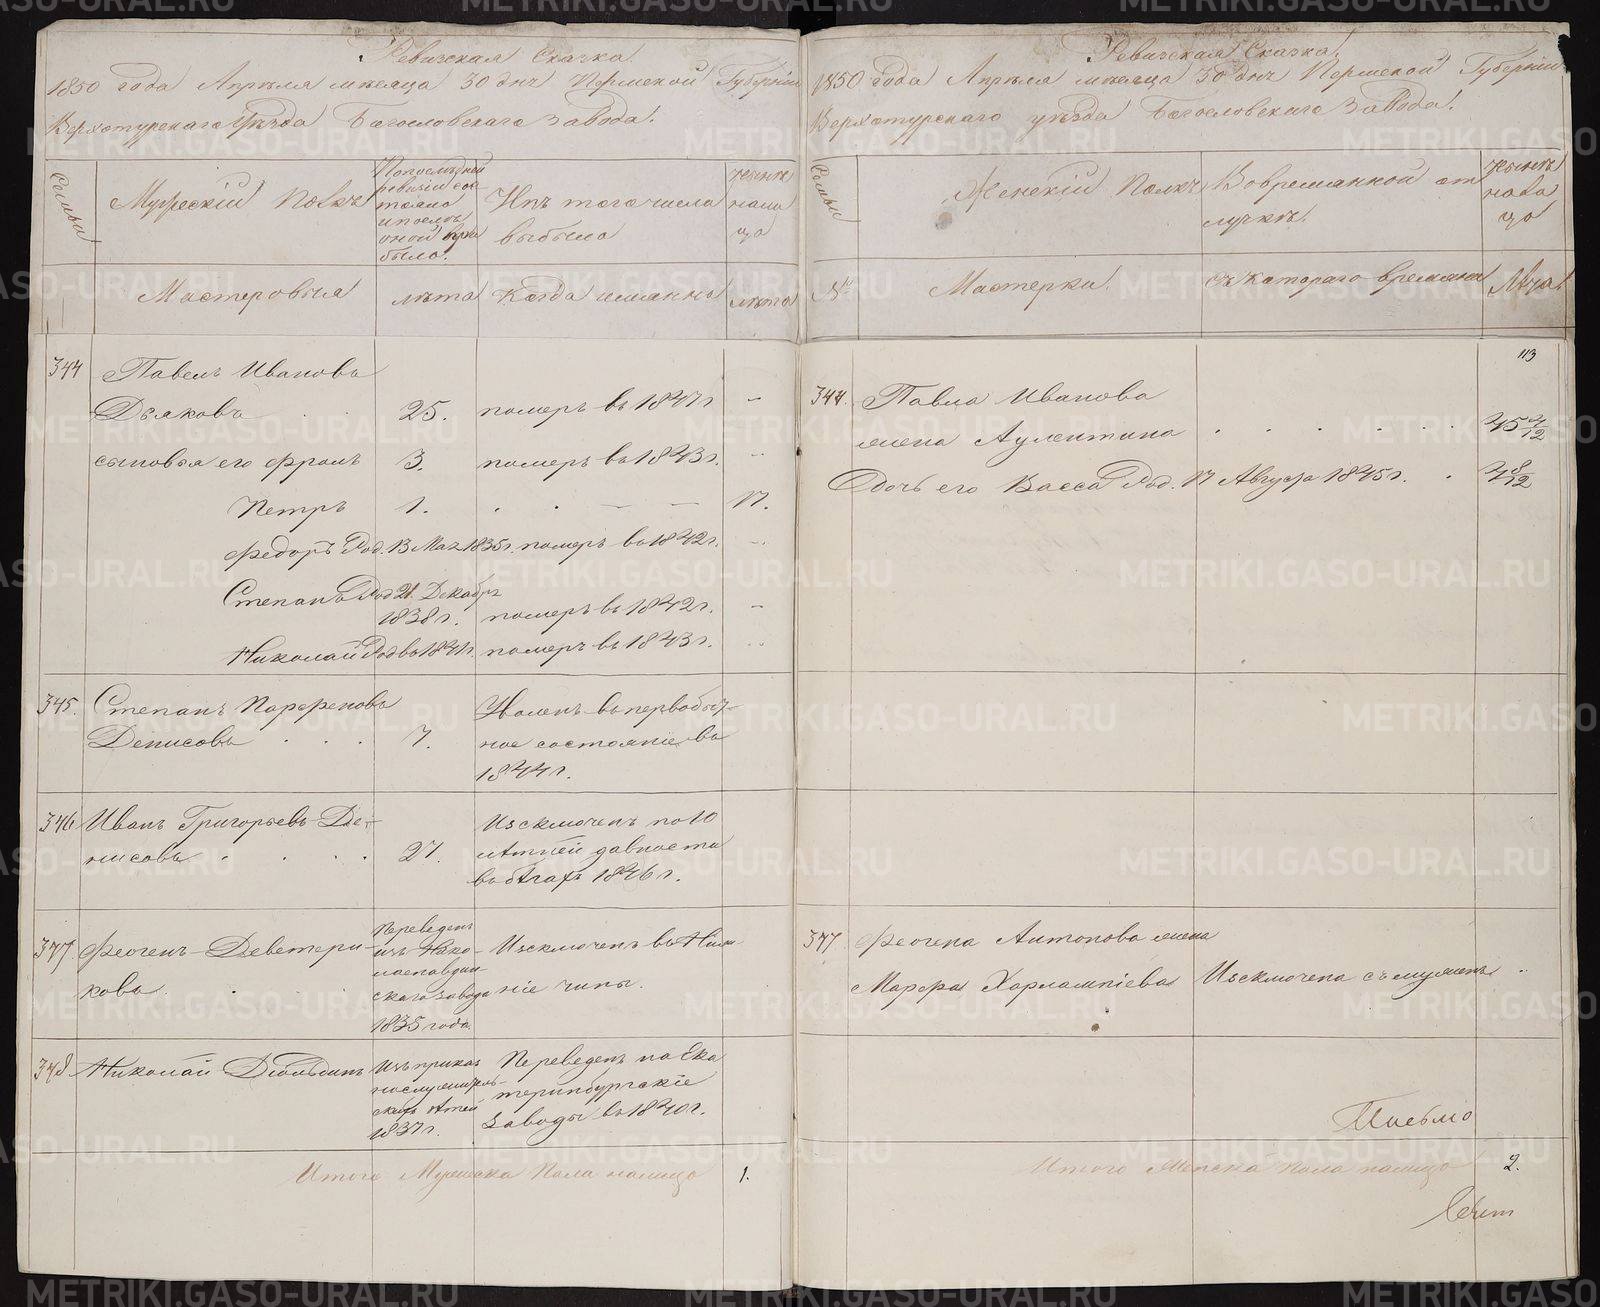 Ревизская Сказка.
1850 года Апреля месяца 30 дня Пермской Губернии
Верхотурскаго Уезда Богословскаго Завода.
Семьи
Мужеский Полъ
По последней
ревизии сос-
тояло
и после
оной при
было.
Изъ того числа
выбыло
Ныне
нали
цо
Мастеровыя
лета
Когда именно
лета
344
Павелъ Ивановъ
Дьяковъ . .
25.
померъ въ 1847 г.
-
сыновья его Фролъ
3.
померъ въ 1843 г.
Петръ
1.
17.
Федоръ Род. 13 Мая 1835 г. померъ въ 1842 г.
Степанъ Род 21. Декабр
1838 г.
померъ въ 1842 г.
-
Николай Род въ 1841 г.
померъ въ 1843 г.
345.
Степанъ Парфеновъ
Денисовъ . . .
7.
въ первобыт-
ное состояние въ
1844 г.
346
Иванъ Григорьевъ Де-
нисовъ . . . .
27.
Изключенъ по 10
летней давности
въ бегахъ 1846 г.
347
Феогенъ Деветери-
ковъ . .
Переведенъ
изъ Нико-
лаепавдин-
скаго завода
1835 года
Изключенъ въ Ниж-
ние чины.
348
Николай
Изъ приказ
нослужитель-
скихъ детей
1837 г.
Переведенъ на Ека
теринбургские
Заводы въ 1840 г.
Итого Мужеска Пола налицо
1.
Ревизская Сказка.
1850 года Апреля месяца 30 дня Пермской Губернии
Верхотурскаго уезда Богословскаго Завода.
Семьи
Женский Полъ
Во временной от
лучке.
Ныне
нали
цо
№
Мастерки.
съ котораго времени
Лета
113
344.
Павла Иванова
жена Аументина . . . . . .
45 4/12
Дочь его Васса Род. 17 Августа 1845 г. .
4 8/12
347
Феогена Антонова жена
Марфа Харлампиева
Изключена съ мужемъ
Письмо
Итого Женска пола налицо
2.
Счет
METRIKI.GASO-URAL.RU